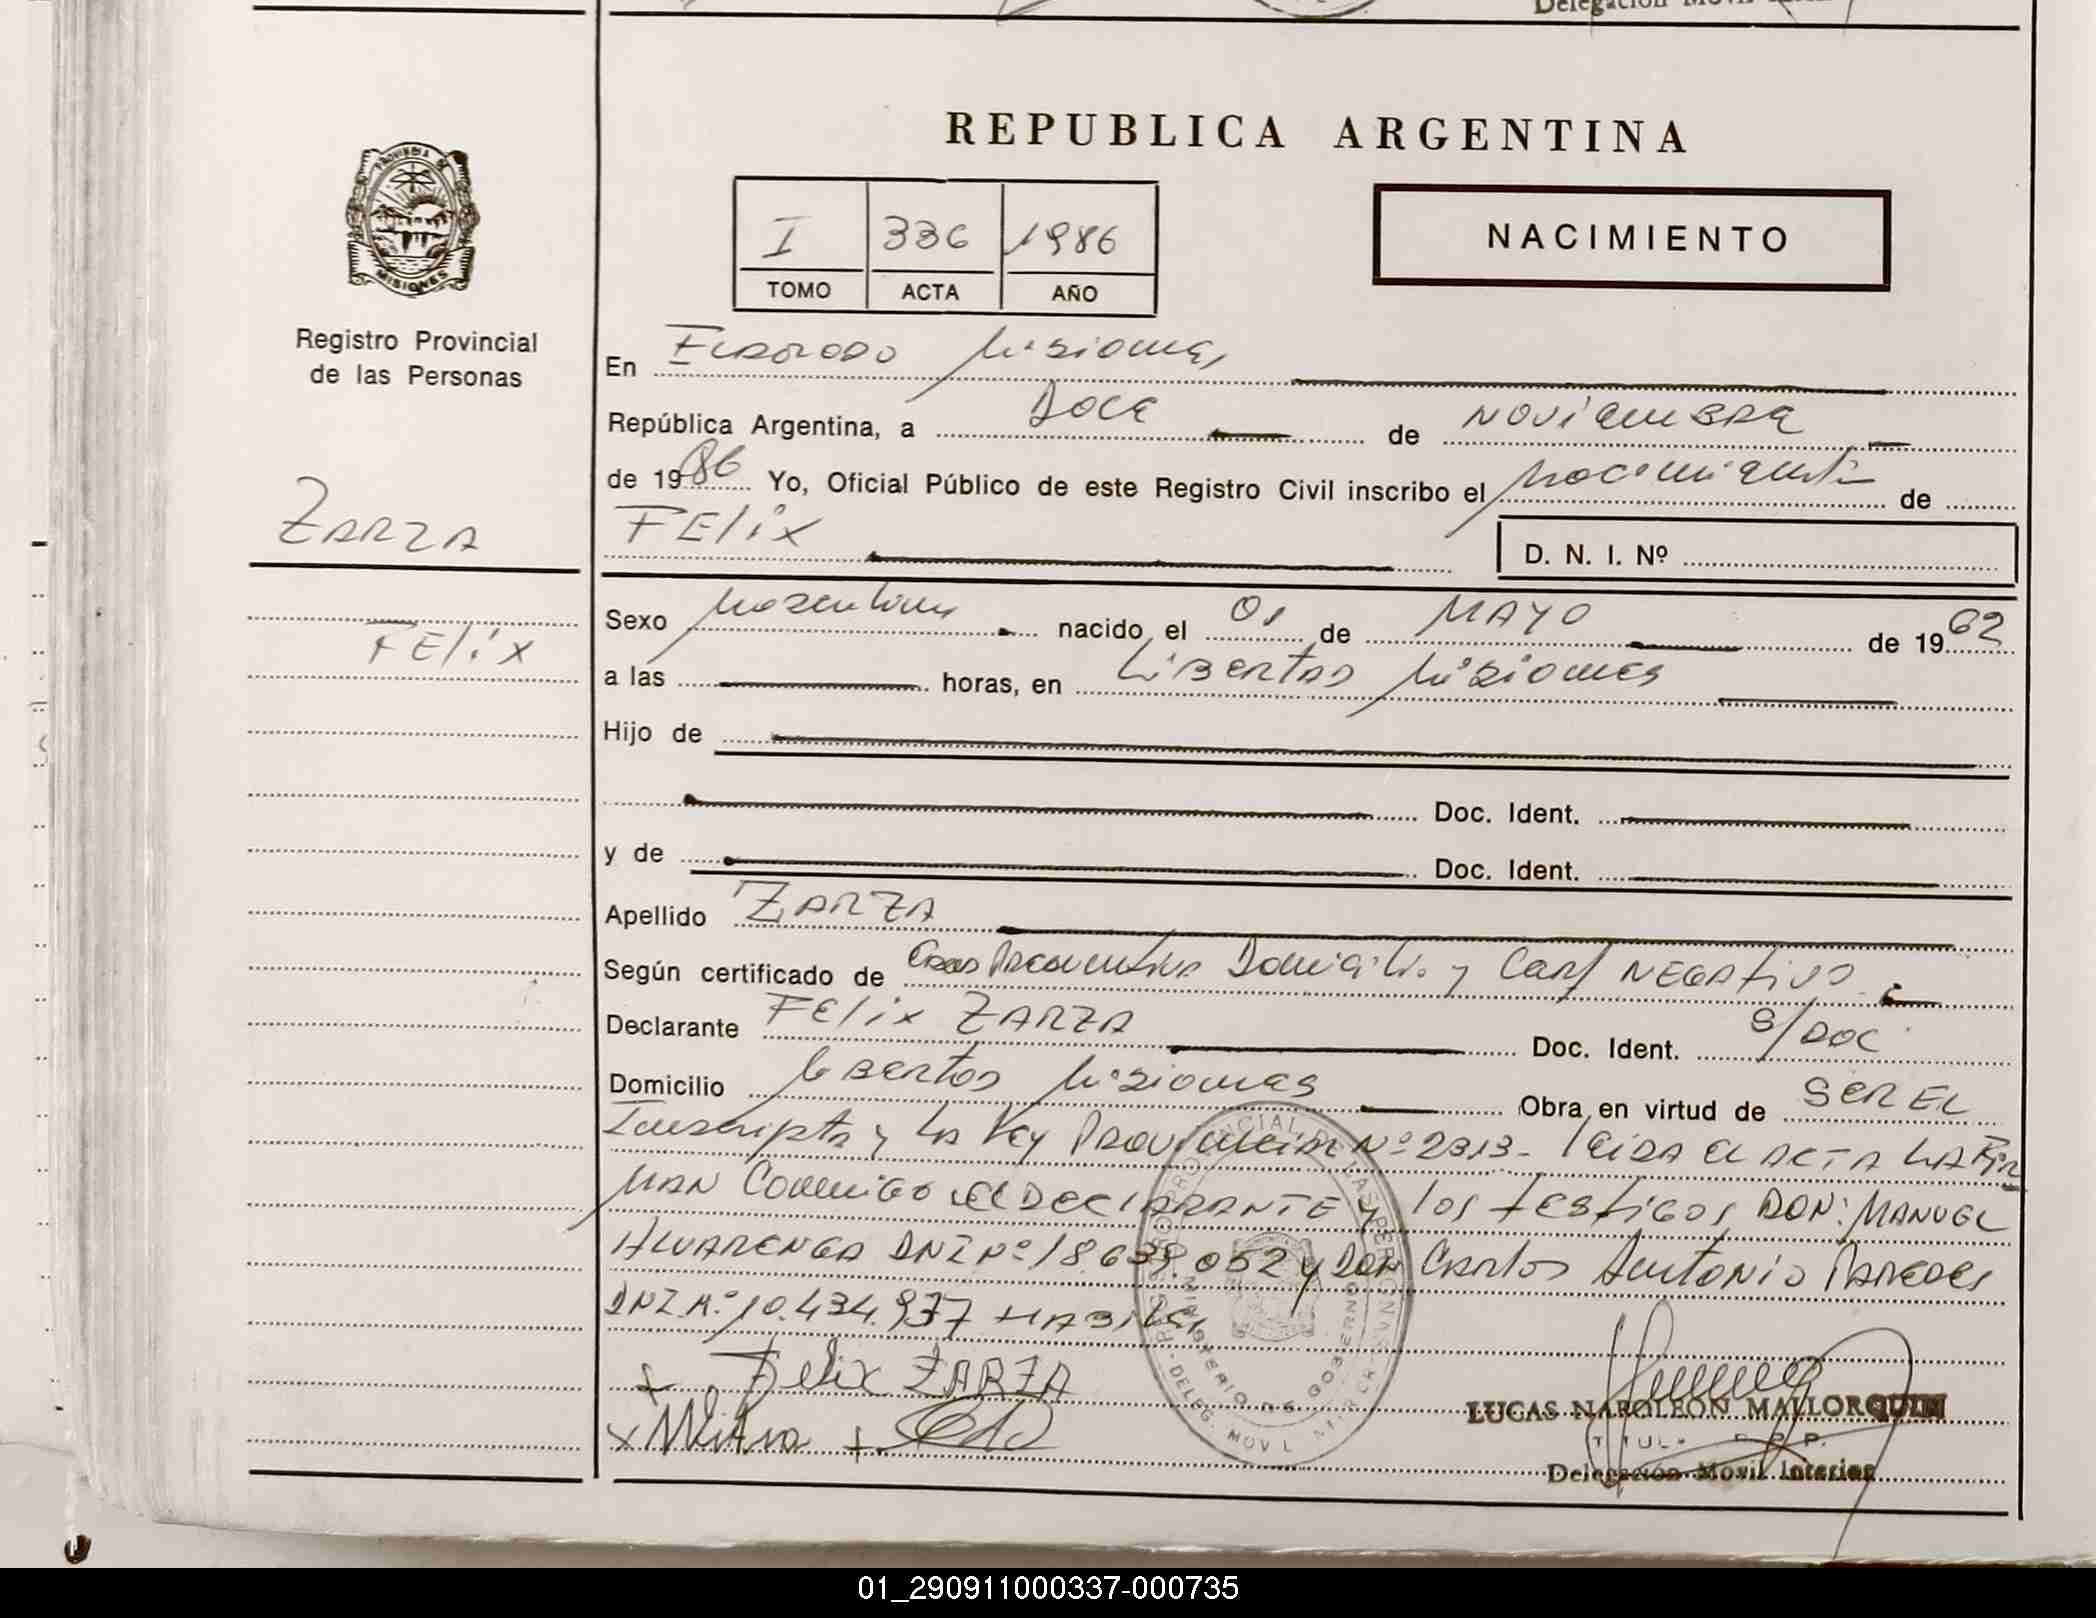 Delegación Movil
REPUBLICA ARGENTINA
PROVINCIA DE
MISIONES
I 336 1986
TOMO ACTA AÑO
NACIMIENTO
Registro Provincial
de las Personas
En ELDORADO Misiones
República Argentina, a DOCE de NOVIEMBRE
de 1986 Yo, Oficial Público de este Registro Civil inscribo el nacimiento de
ZARZA
FELIX
D. N. I. Nº
FELIX
Sexo Masculino nacido el 01 de MAYO de 1962
a las horas, en LIBERTAD Misiones
Hijo de
Doc. Ident.
y de Doc. Ident.
Apellido ZARZA
Según certificado de Domicilio y NEGATIVO
Declarante FELIX ZARZA Doc. Ident. S/DOC
Domicilio Libertad Misiones Obra en virtud de SER EL
Inscripto y la Ley PROVINCIAL Nº 2313- leida el ACTA LA FIR
MAN Conmigo el DECLARANTE y los testigos DON: MANUEL
ALVARENGA DNI Nº 18.639.052 y DON Carlos Antonio PAREDES
DNI Nº 10.434.977 HABILES
+ Felix ZARZA
LUCAS NAPOLEON MALLORQUIN
TITULAR D.R.P.
Delegación Movil Interior
REGISTRO PROVINCIAL DE LAS PERSONAS
MINISTERIO DE GOBIERNO
01_290911000337-000735